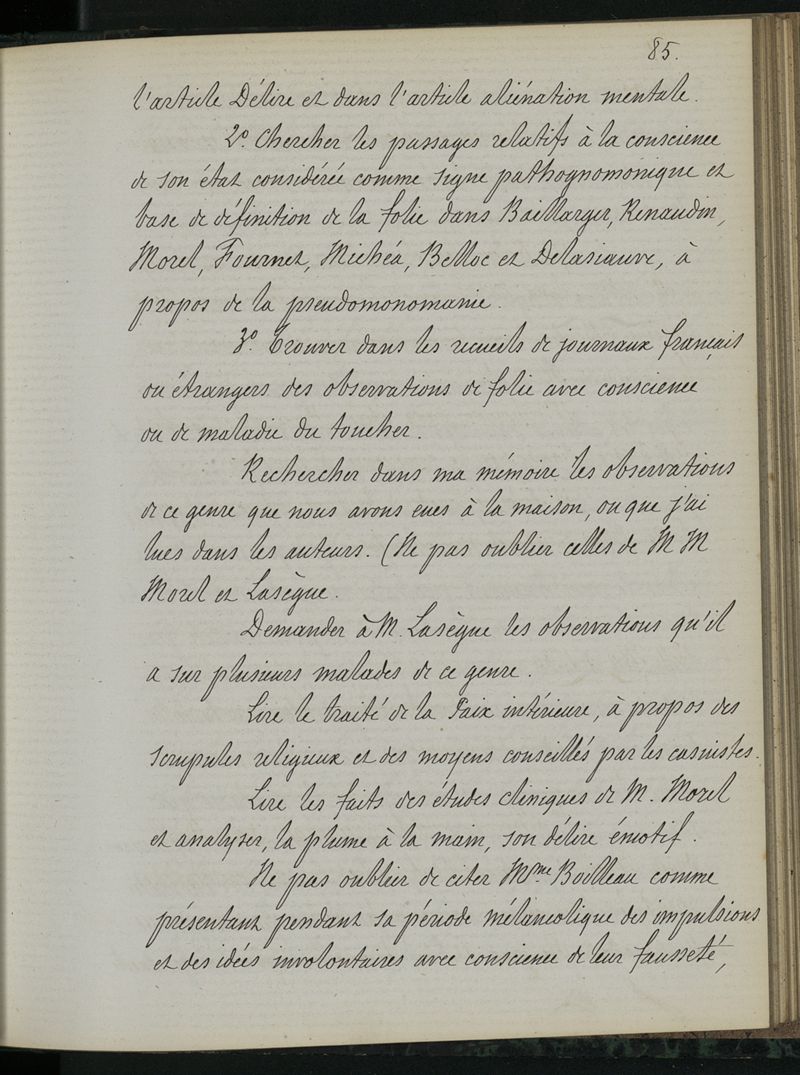 85.
l'article Délire et dans l'article aliénation mentale.
2º. Chercher les passages relatifs à la conscience
de son état considérée comme signe pathognomonique et
base de définition de la folie dans Baillarger, Renaudin,
Morel, Fournet, Michéa, Belloc et Delasiauve, à
propos de la pseudomonomanie.
3º. Trouver dans les recueils de journaux français
ou étrangers des observations de folie avec conscience
ou de maladie du toucher.
Rechercher dans ma mémoire les observations
de ce genre que nous avons eues à la maison, ou que j'ai
lues dans les auteurs. (Ne pas oublier celles de M M
Morel et Lasègue.
Demander à M. Lasègue les observations qu'il
a sur plusieurs malades de ce genre.
Lire le traité de la Paix intérieure, à propos des
scrupules religieux et des moyens conseillés par les casuistes.
Lire les faits des études cliniques de M. Morel
et analyser, la plume à la main, son délire émotif.
Ne pas oublier de citer Mme Boilleau comme
présentant pendant sa période mélancolique des impulsions
et des idées involontaires avec conscience de leur fausseté,